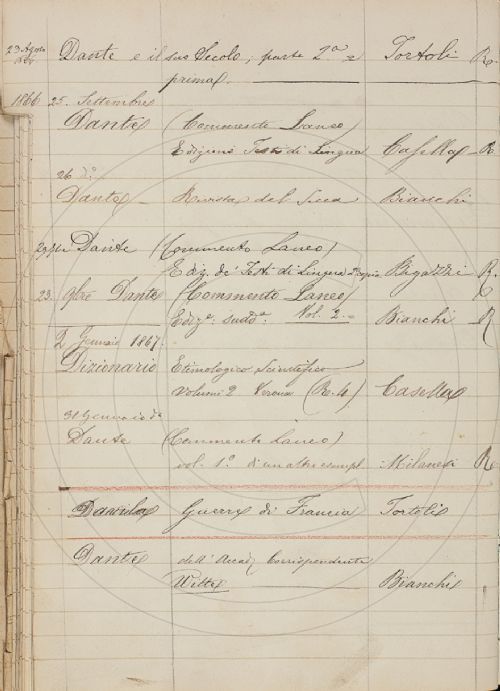 23 Agosto
Dante e il suo Secolo, parte 2.a e Tortoli R.
prima
1866 25. Settembre
Dante (Commento Laneo)
Edizione Testi di Lingua Casella R.
26 d.o
Dante Rivista del Bianchi
Dante (Commento Laneo)
Ediz. de' Testi di Lingua Bigazzi R.
23. Dante (Commento Laneo)
Ediz.e sudd.a Vol. 2. Bianchi R
2 Gennaio 1867.
Dizionario Etimologico Scientifico
Volumi 2 Verona (R. 4) Casella
31 Gennaio d.o
Dante (Commento Laneo)
vol. 1.o di un altro esempl. Milanesi R
Davila Guerre di Francia Tortoli
Dante dell' Accad. Corrispondente
Witte Bianchi